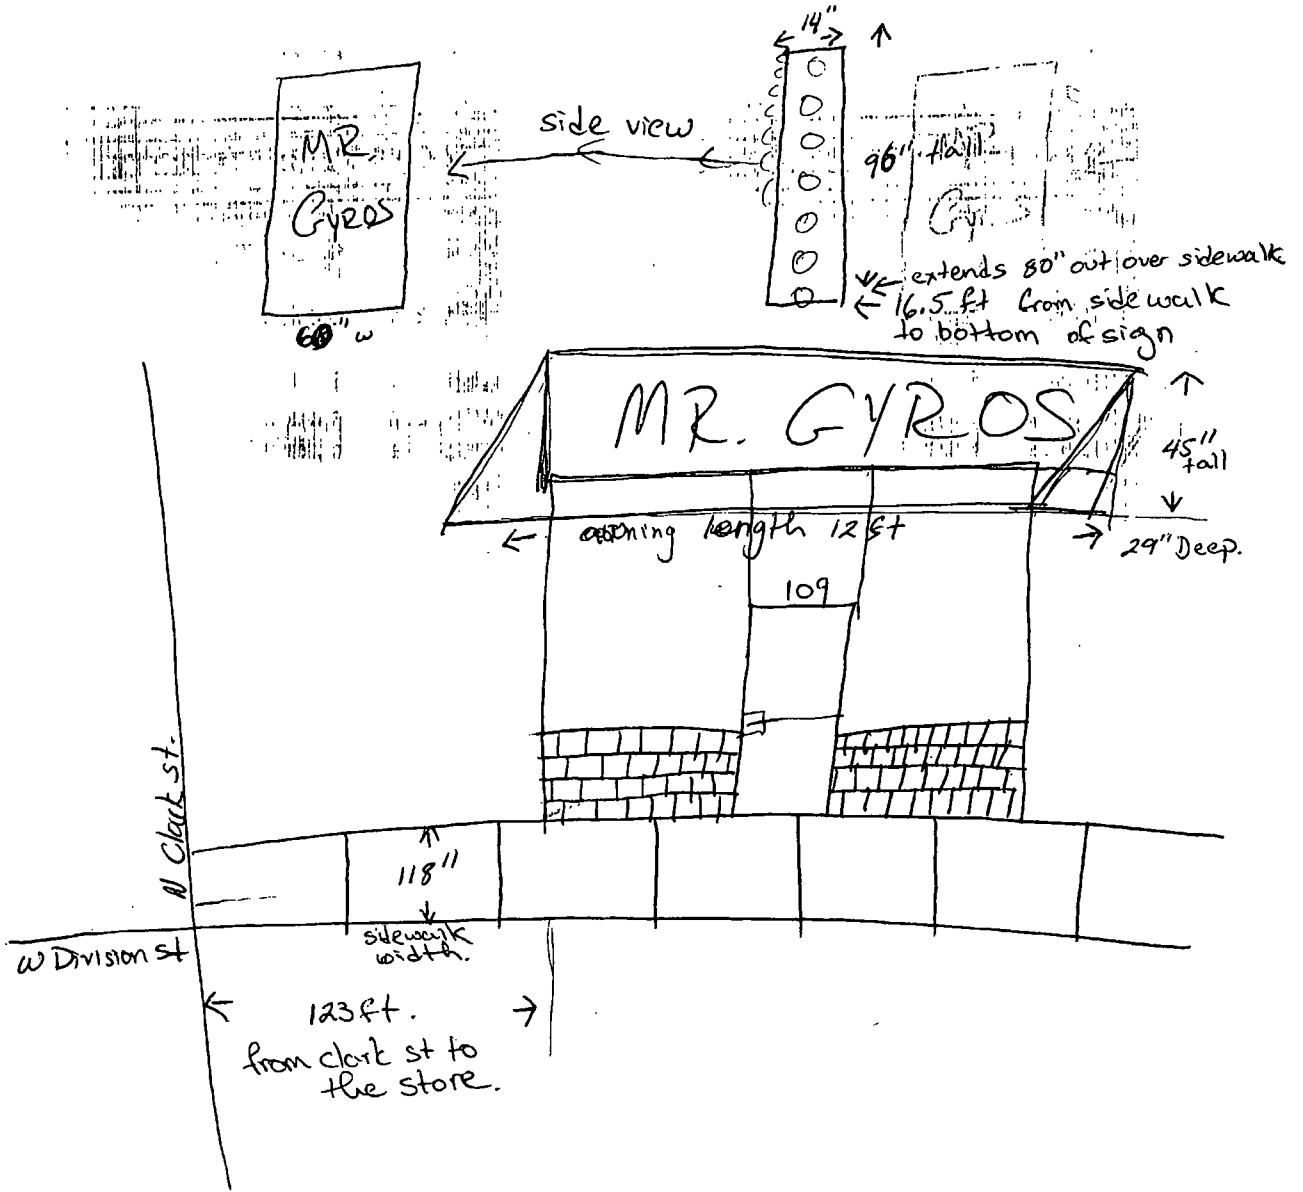 14"
MR.
GYROS
side view
96" tall
Gy
extends 80" out over sidewalk
16.5 ft from sidewalk
to bottom of sign
60" w
MR. GYROS
45"
tall
awning length 12 ft
29" Deep.
109
N Clark st.
118"
sidewalk
width.
W Division st
123 ft.
from clark st to
the store.